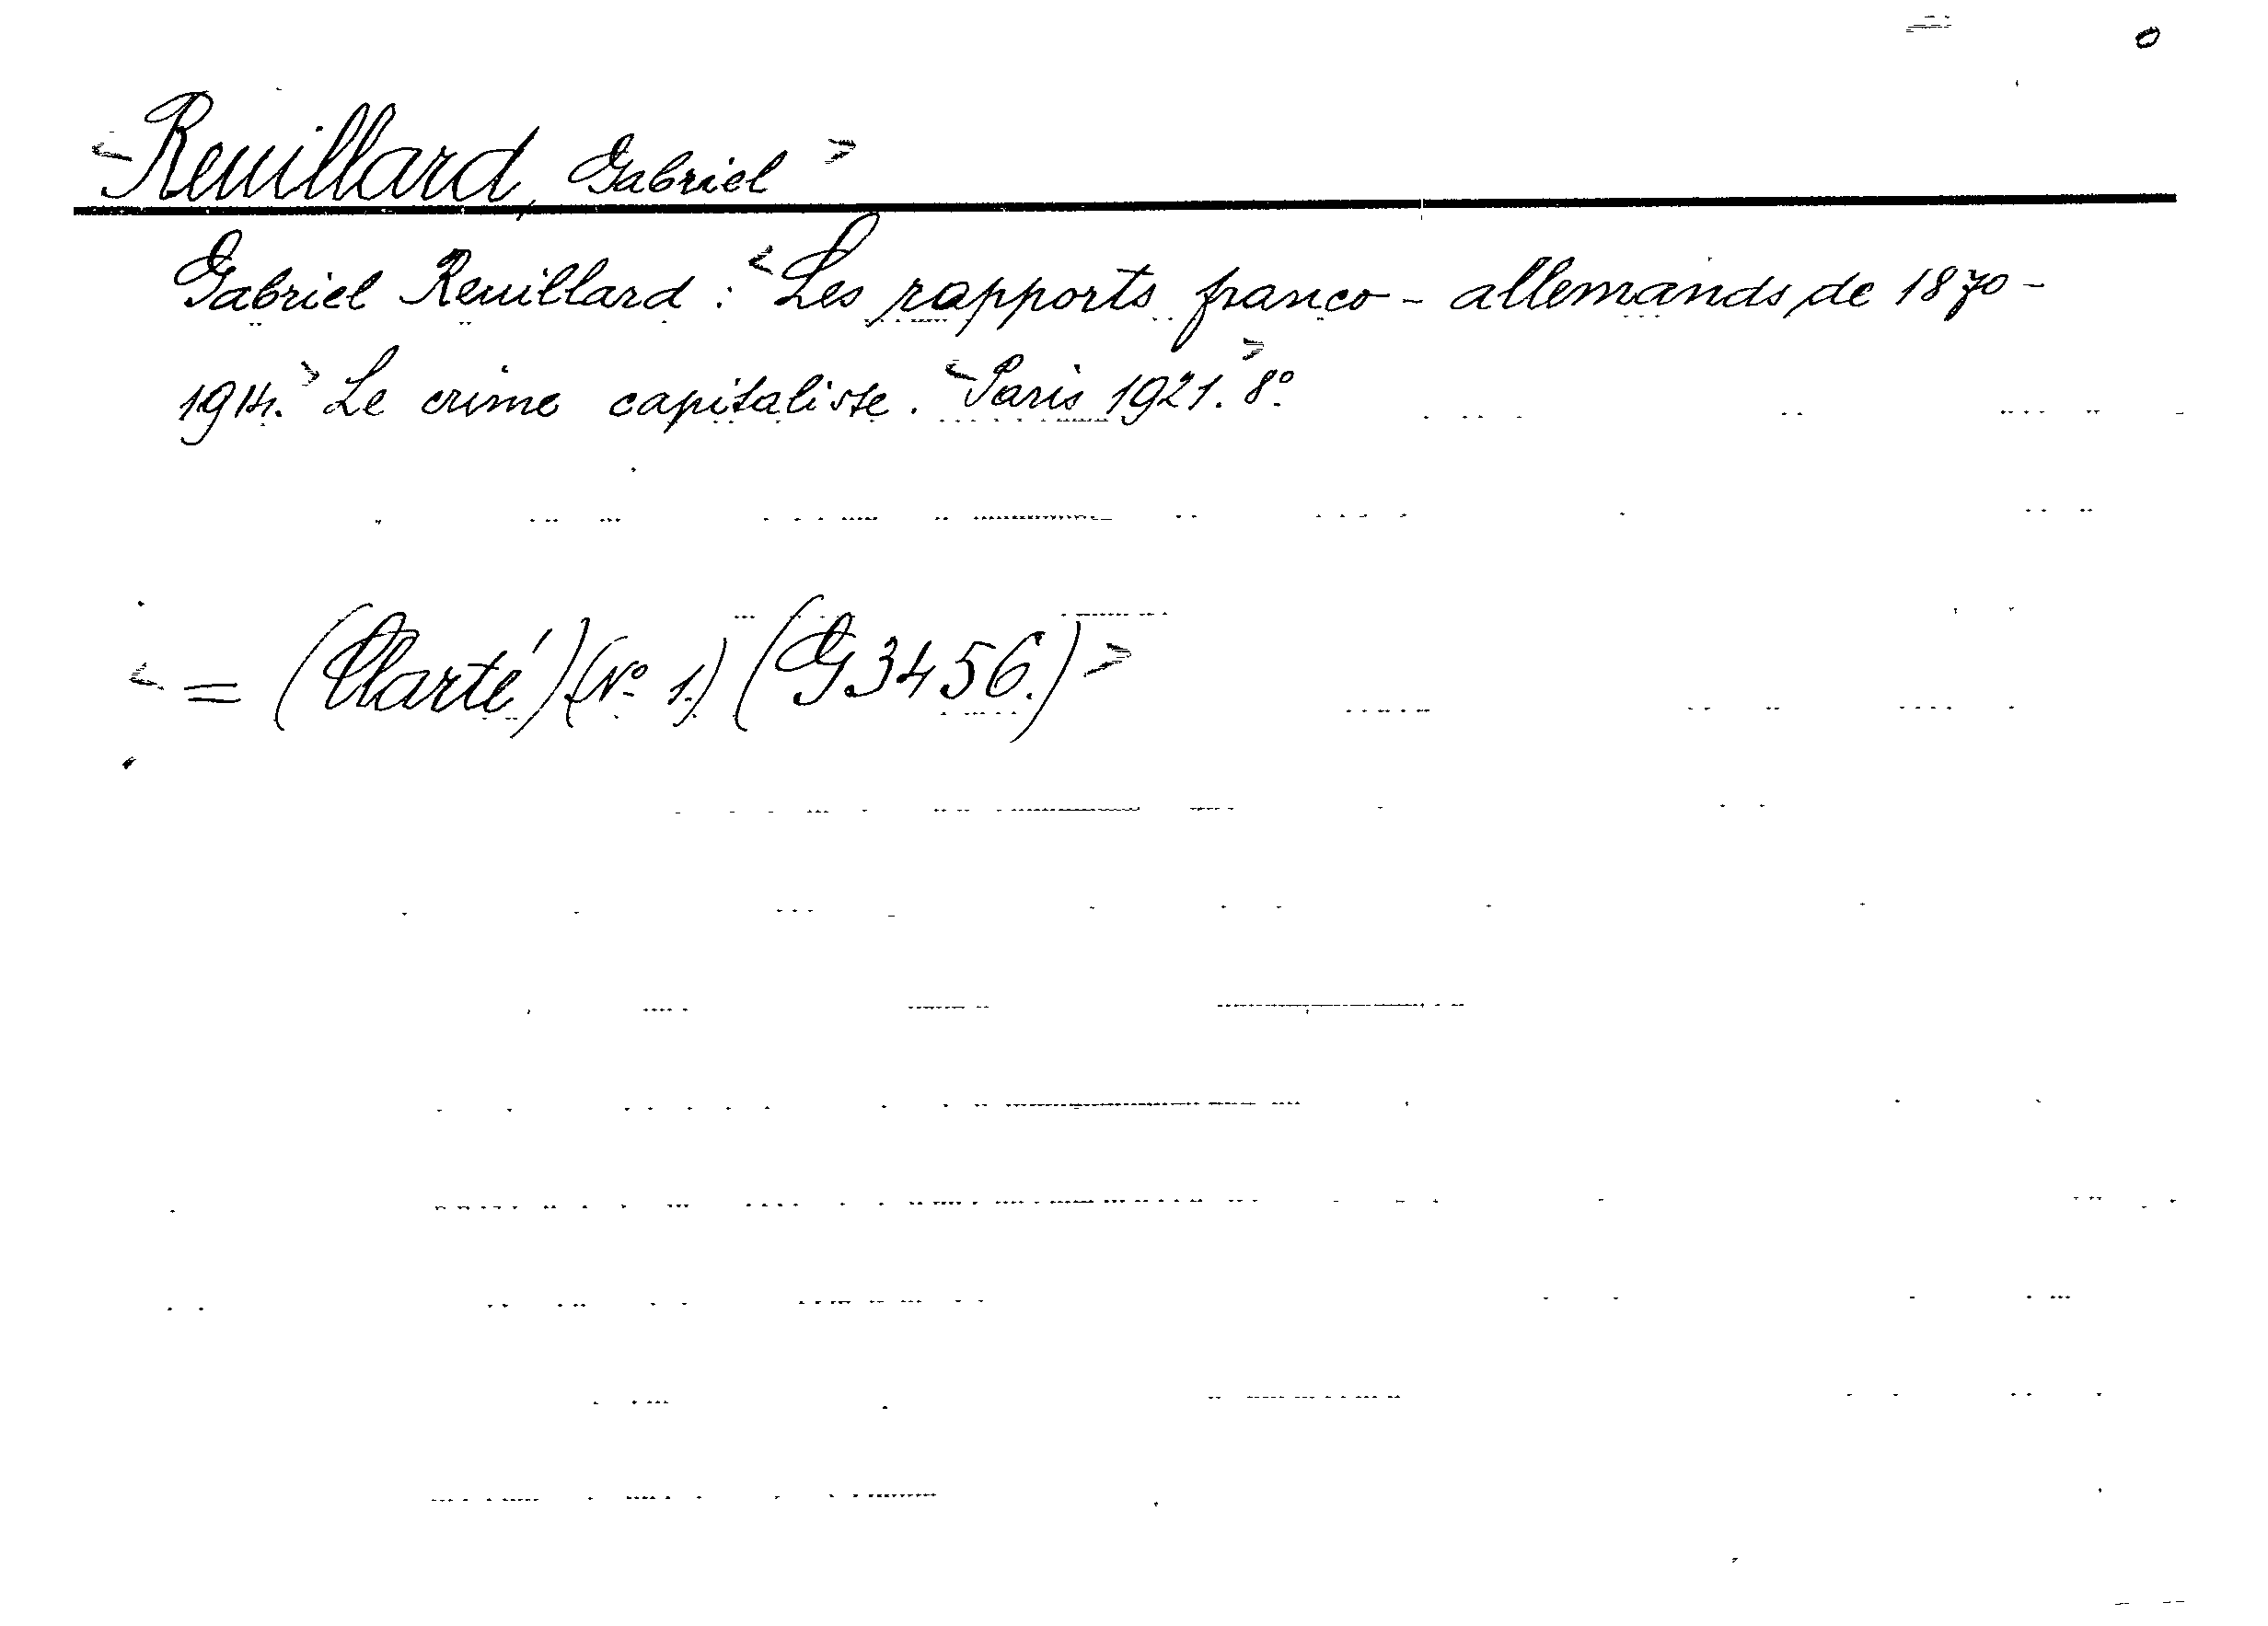 <Reuillard, Gabriel>
Gabriel Reuillard: <Les rapports franco-allemands de 1870-
1914.> Le crime capitaliste. <Paris 1921.> 8º.
<= (Clarté) (Nº 1.) (G 3456.)>